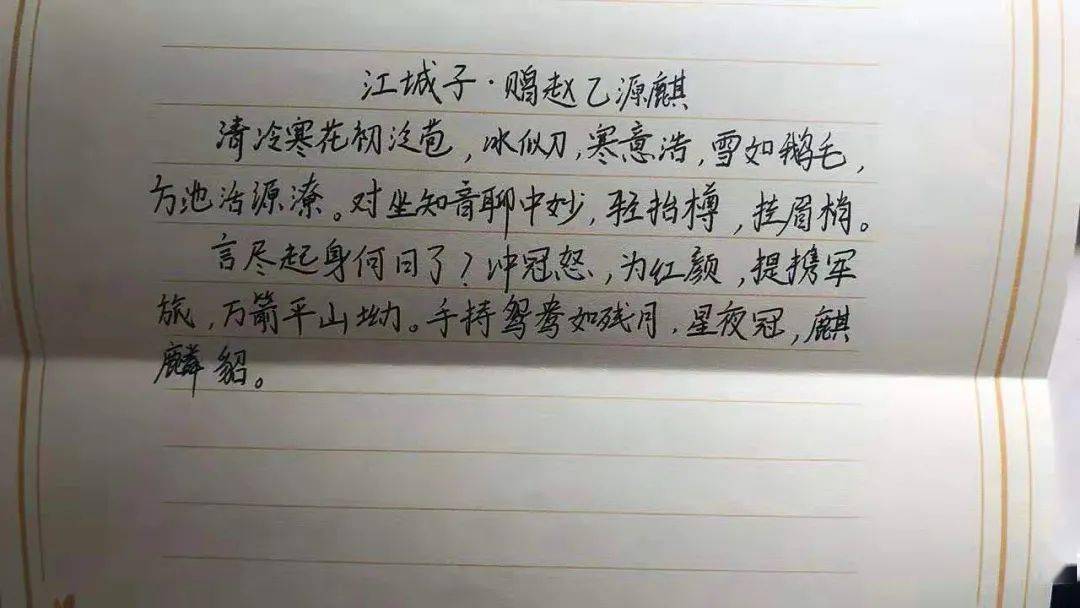 江城子·赠赵乙源麒
清冷寒花初泛苞，冰似刀，寒意浩，雪如鹅毛，
方池沽源潦。对坐知音聊中妙，轻抬樽，挂眉梢。
言尽起身何日了？冲冠怒，为红颜，提携军
旅，万箭平山坳。手持鸳鸯如残月，星夜冠，麒
麟貂。